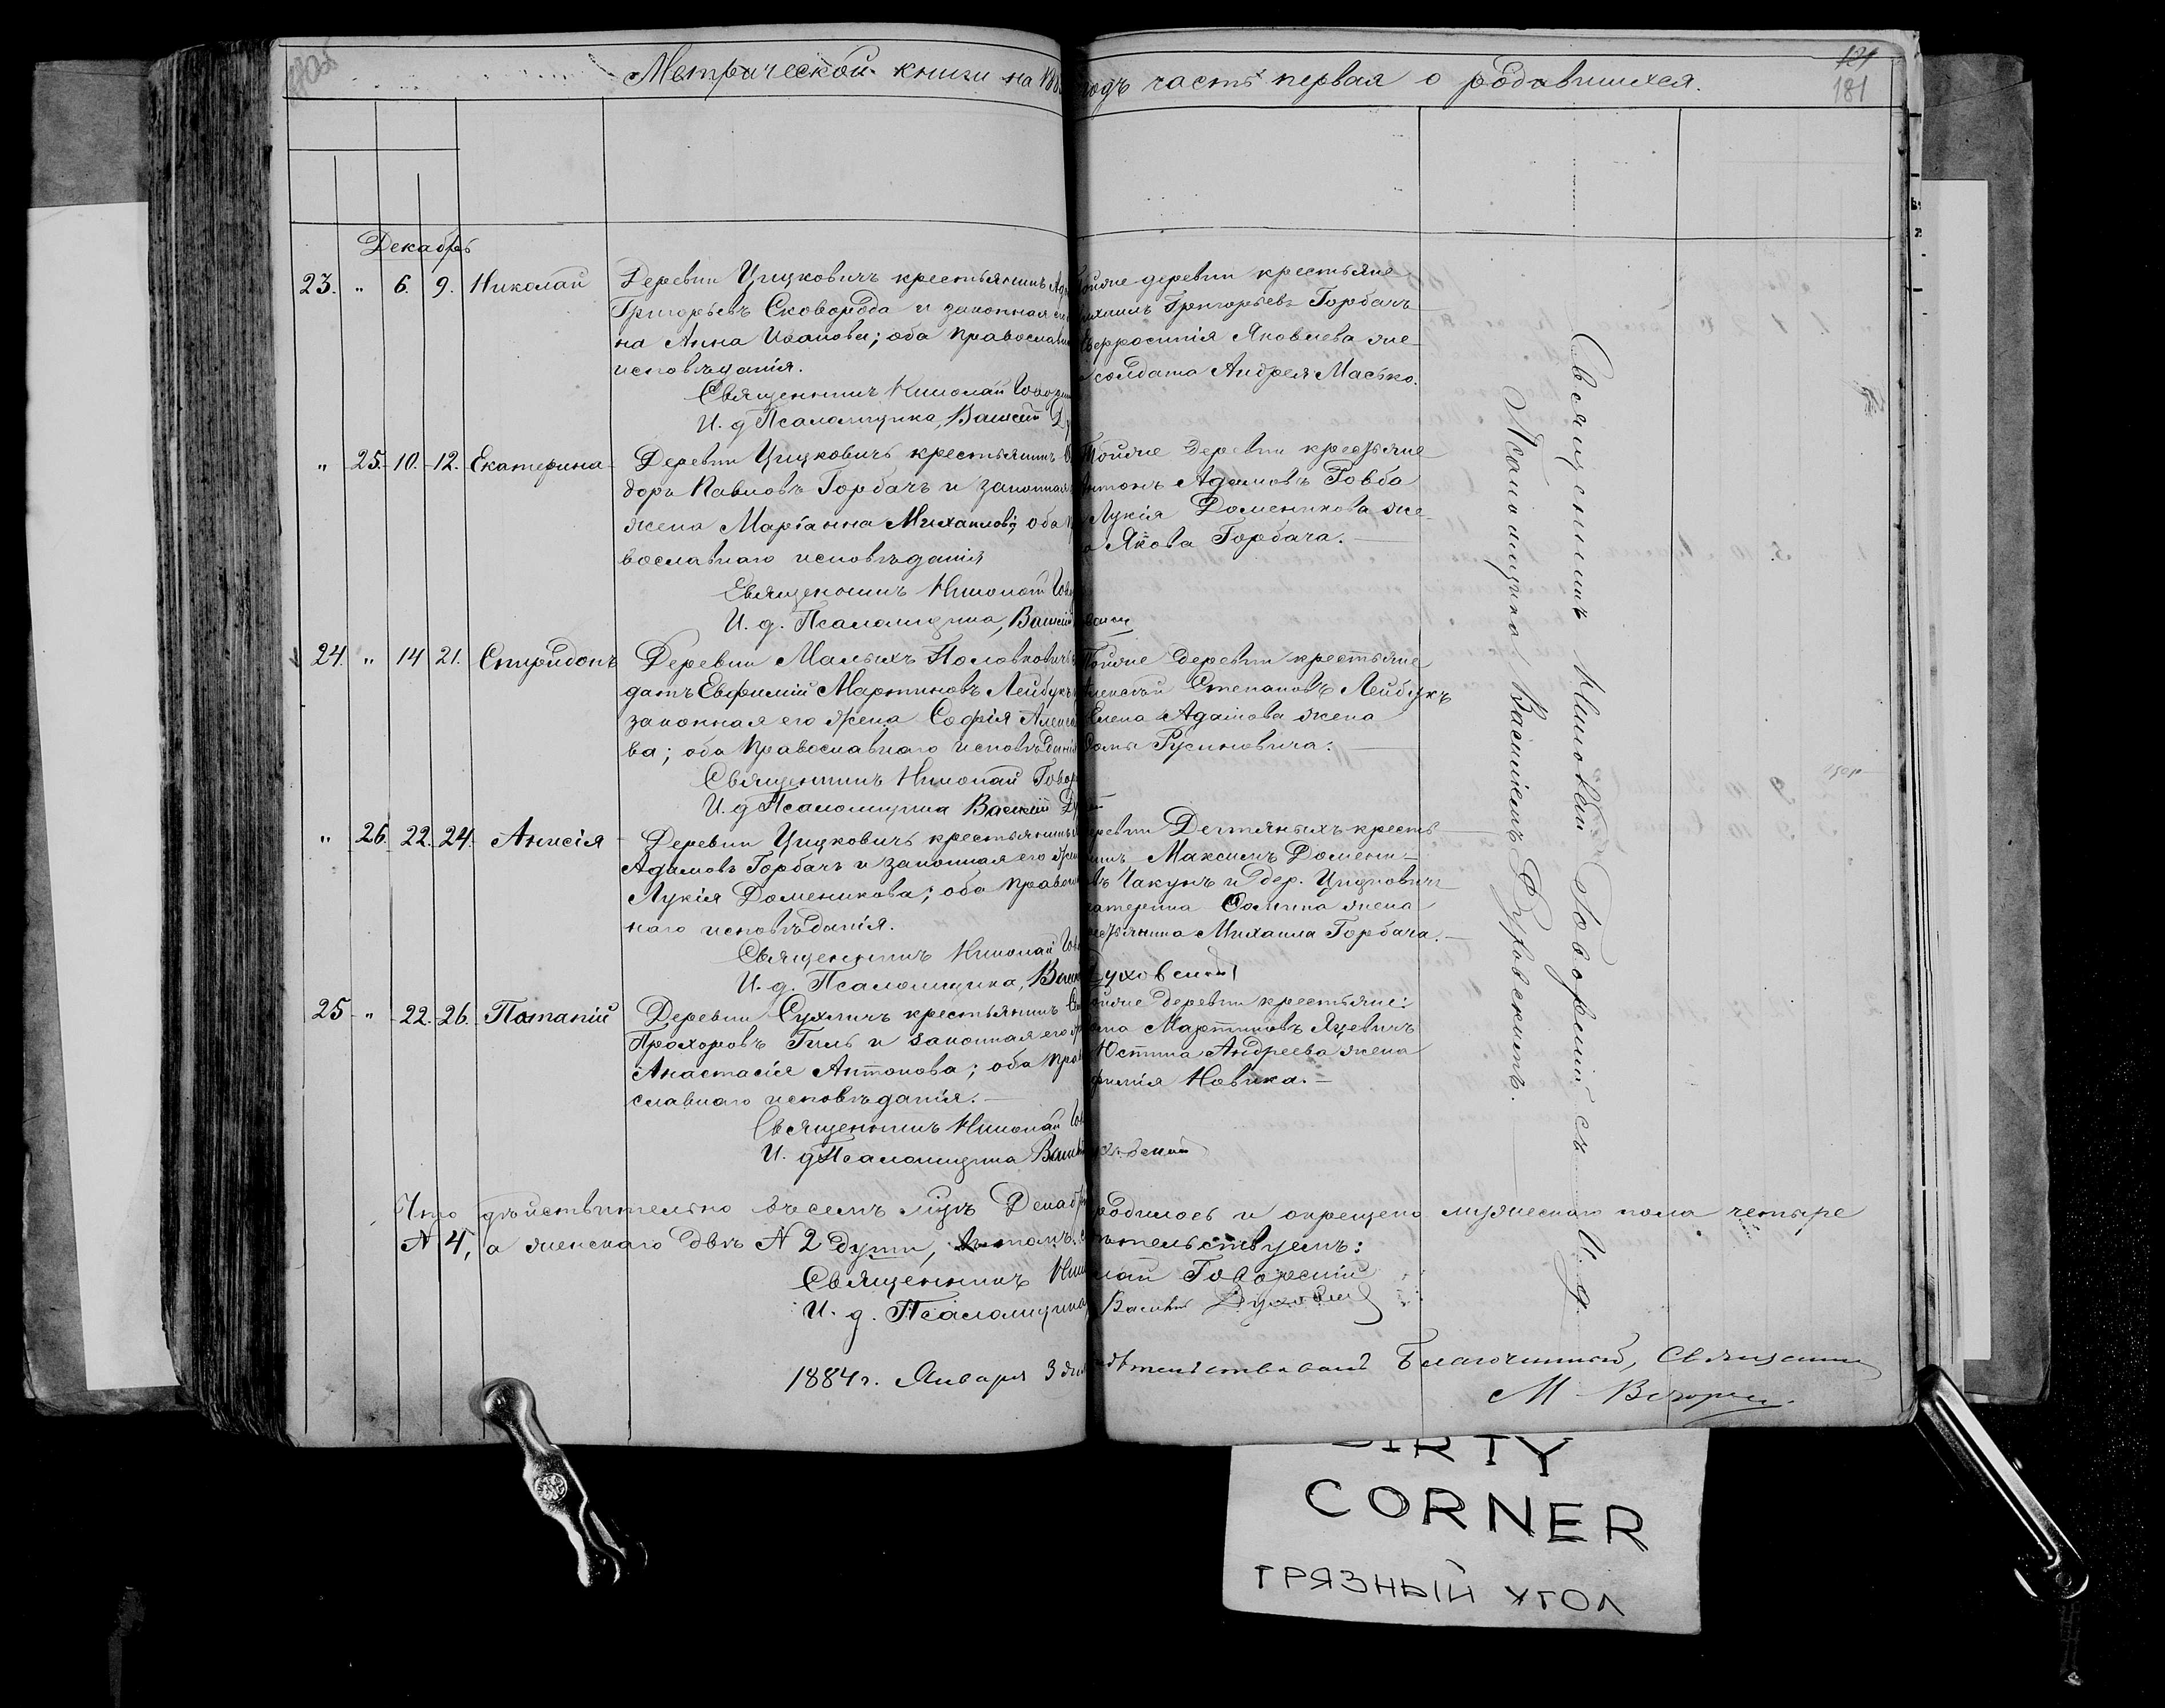 Метрической книги на 188 годъ часть первая о родившихся.
181
Декабрь
23. " 6. 9. Николай
Деревни Цицковичъ крестьянинъ
Григорьевъ Сковорода и законная
на Анна Иванова; оба православн
исповѣданія.
Священникъ Николай Говорск
И. д. Псаломщика, Василій Ду
тойже деревни крестьяне
Михаилъ Григорьевъ Горбачъ
Евфросинія Яковлева же-
солдата Андрея Масько.
" 25. 10. 12. Екатерина
Деревни Цицковичъ крестьянинъ
доръ Павловъ Горбачъ и законная
жена Маріанна Михаилова; оба пр
вославнаго исповѣданія
Священникъ Николай Гово
И. д. Псаломщика, Василій
Тойже деревни крестьяне
Антонъ Адамовъ Говба
Лукія Доменикова же-
Якова Горбача.
24. " 14 21. Спиридонъ
Деревни Малыхъ Половковичъ
датъ Евфимій Мартиновъ Лейбукъ
законная его жена Софія Алексе
ва; оба православнаго исповѣданія
Священникъ Николай Говор
И. д Псаломщика Василій Ду
Тойже деревни крестьяне
Алексѣй Степановъ Лейбукъ
Елена Адамова жена
Фомы Русиновича.
" 26. 22. 24. Анисія
Деревни Цицковичъ крестьянинъ
Адамовъ Горбачъ и законная его жен
Лукія Доменикова; оба правосл
наго исповѣданія.
Священникъ Николай Гово
И. д. Псаломщика, Васил Духовский
деревни Дегтяныхъ кресть
нинъ Максимъ Домени-
въ Чакунъ и дер. Цицковичъ
катерина Фомина жена
крестьянина Михаила Горбача.
25 " 22. 26. Потапій
Деревни Сухличъ крестьянинъ
Прохоровъ Гиль и законная его ж
Анастасія Антонова; оба прав
славнаго исповѣданія.
Священникъ Николай Гов
И. д Псаломщика Василій
тойже деревни крестьяне:
Фома Мартиновъ Яцевичъ
Юстина Андреева жена
Новика.
Священникъ Николай Говорский съ И. д.
Псаломщикомъ Василіемъ Духовскимъ.
Что дѣйствительно въ семъ мцѣ Декабрѣ родилось и окрещено мужескаго пола четыре
№ 4, а женскаго двѣ № 2 души, въ томъ свидѣтельствуемъ:
Священникъ Николай Говорский
И. д. Псаломщика Василій Духовский
1884 г. Января 3 дня свидѣтельствовалъ Благочинный, Священникъ
М
DIRTY
CORNER
ГРЯЗНЫЙ УГОЛ